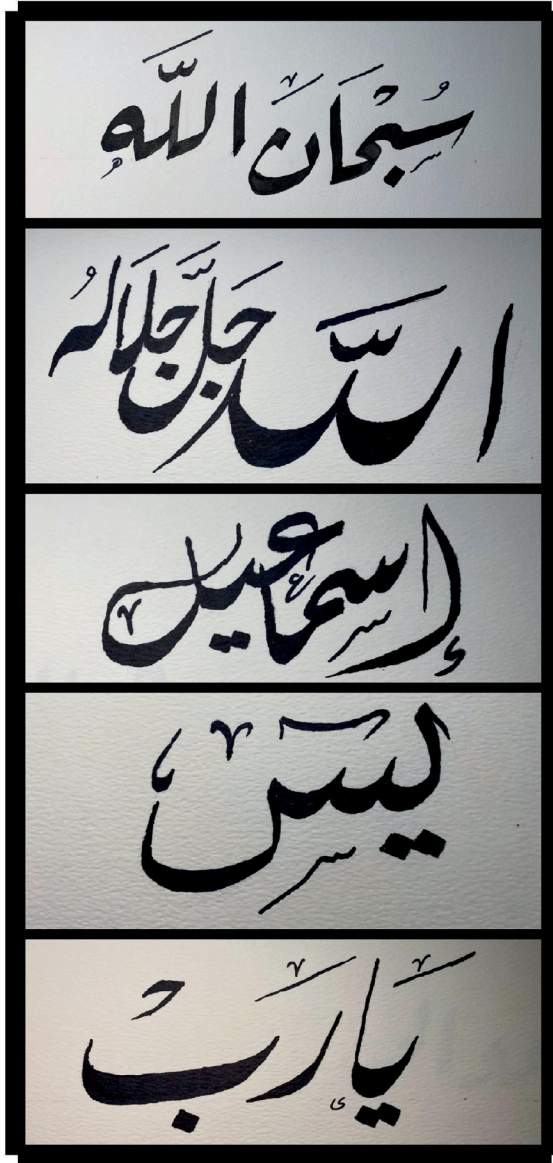 سُبْحَانَ اللّٰه
اللّٰه جَلَّ جَلَالُهُ
إسماعيل
يس
يَا رَبْ